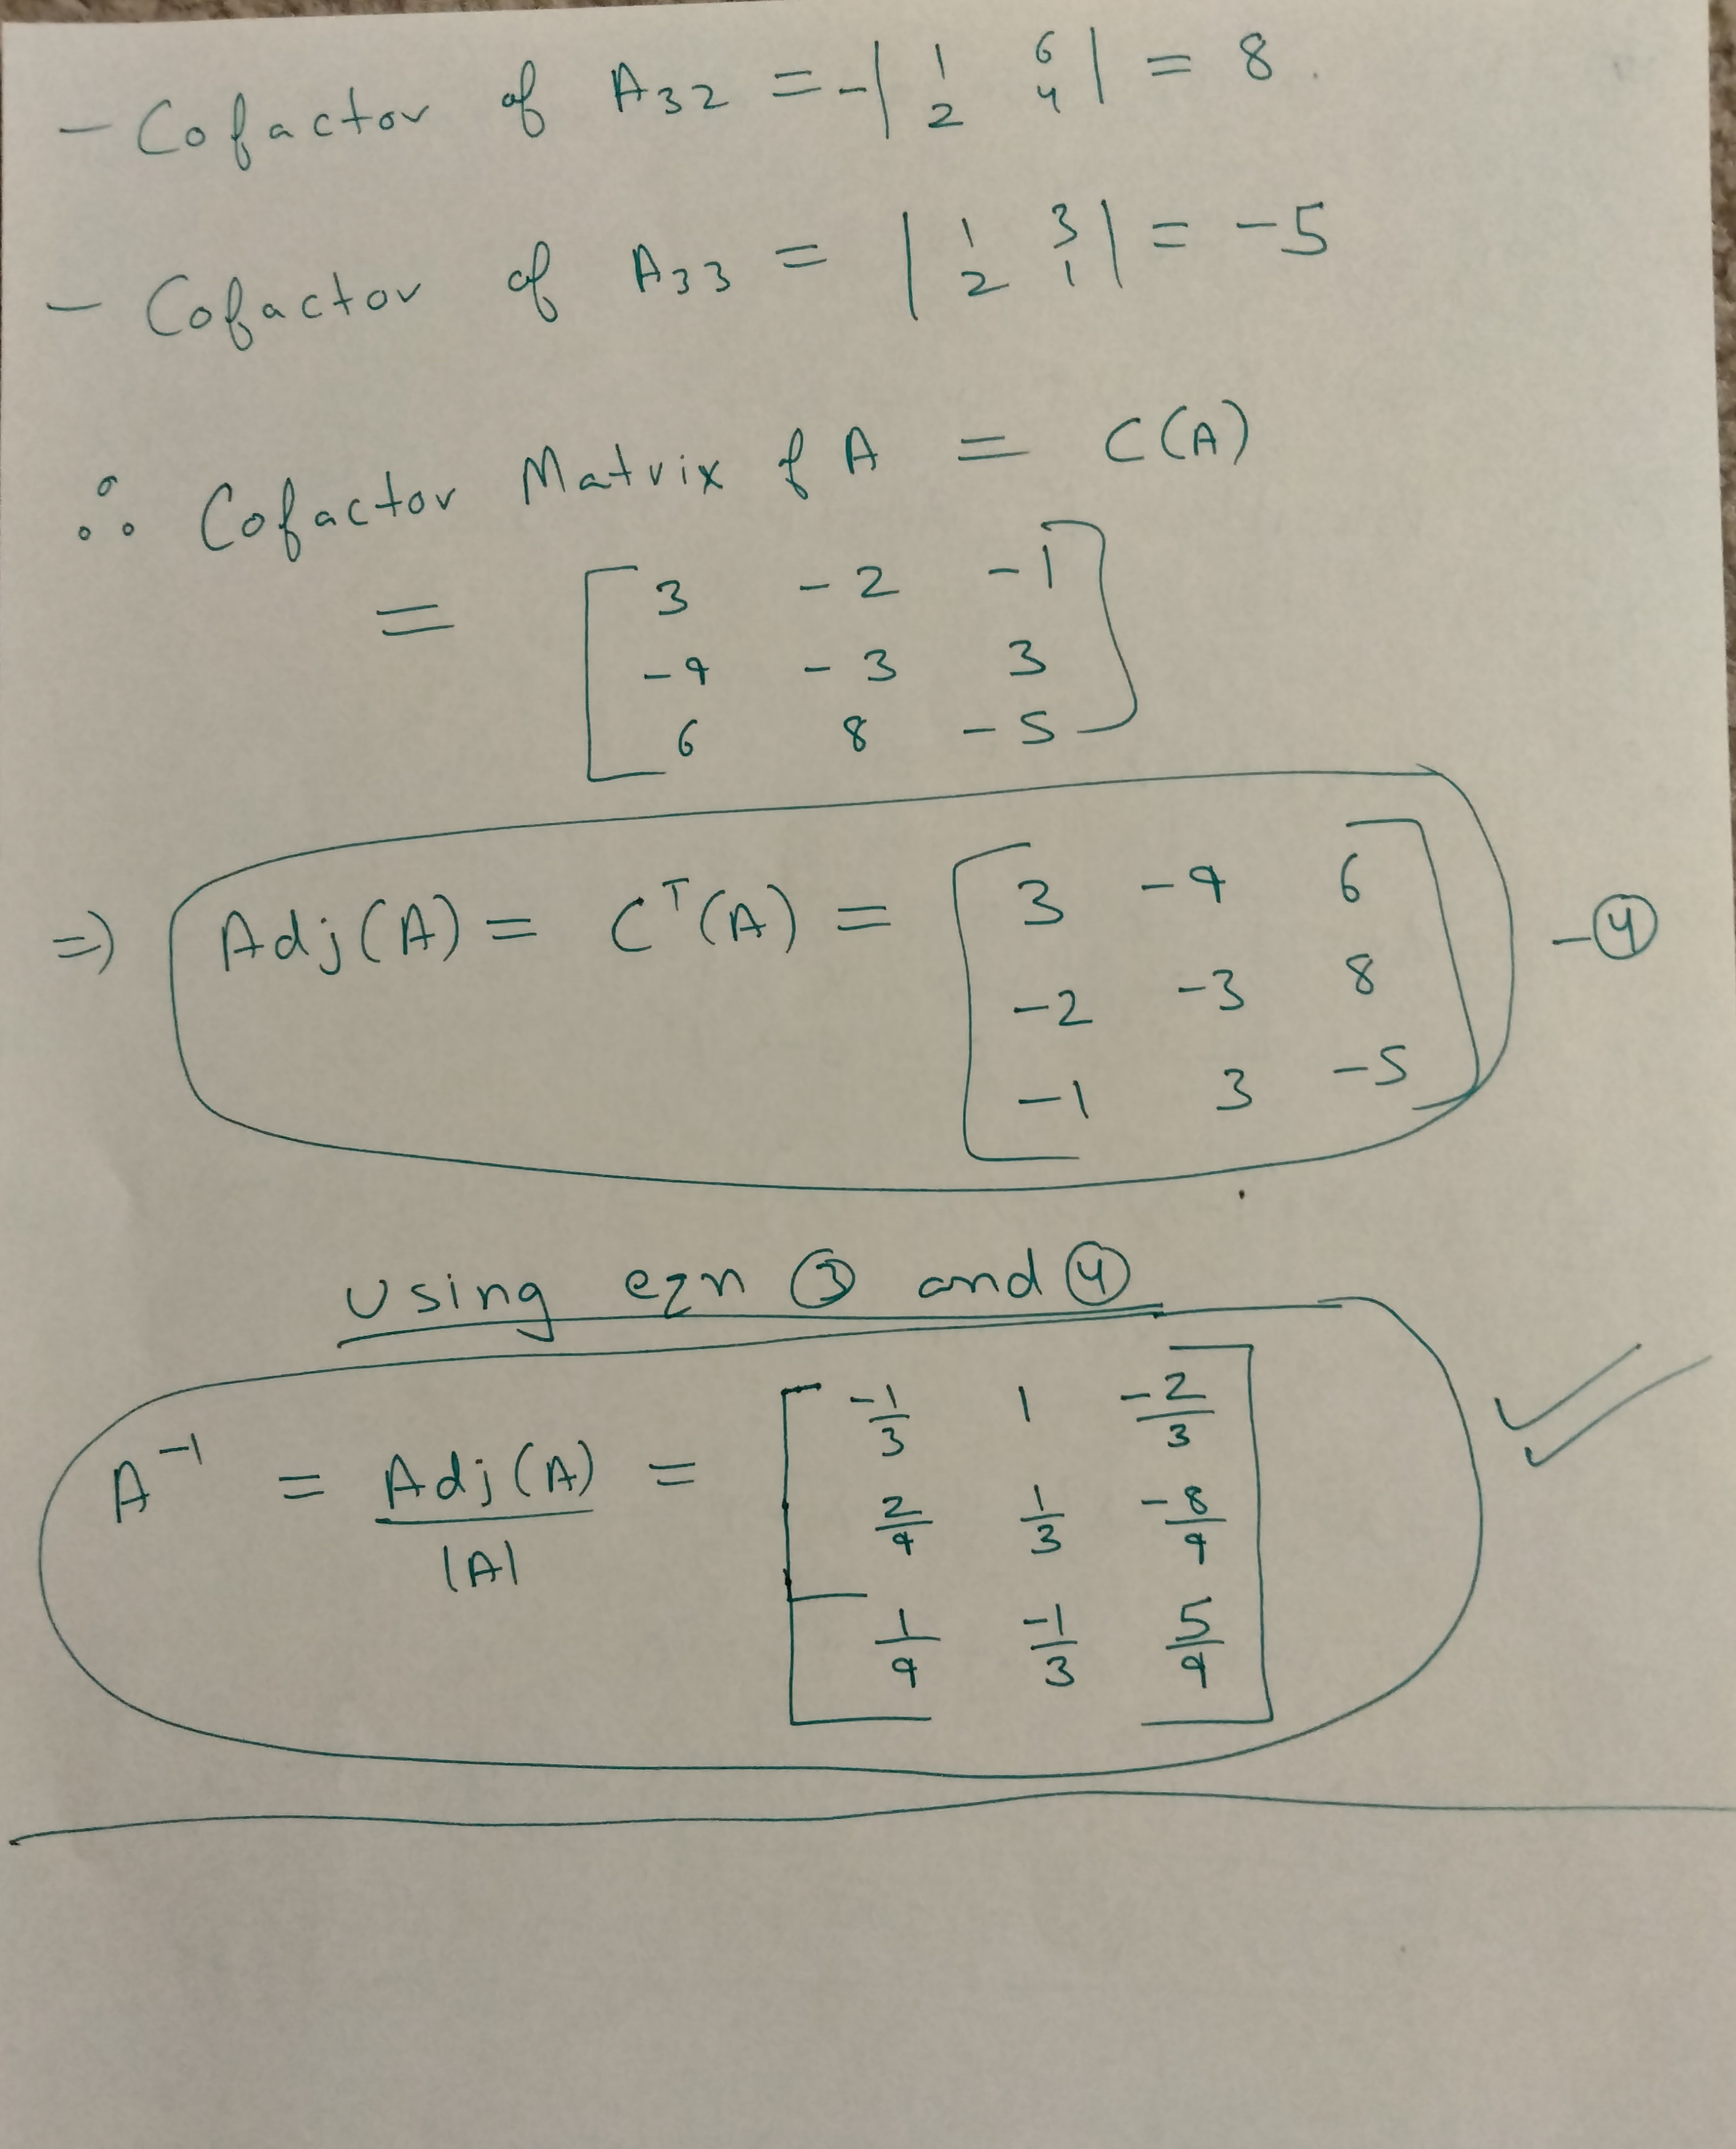 - Cofactor of A32 = -| 1 6 | = 8
2 4
- Cofactor of A33 = | 1 3 | = -5
2 1
∴ Cofactor Matrix of A = C(A)
= [ 3 -2 -1
-9 -3 3
6 8 -5 ]
=> Adj(A) = C^T(A) = [ 3 -9 6
-2 -3 8
-1 3 -5 ] - ④
Using eqn ③ and ④
A^-1 = Adj(A) / |A| = [ -1/3 1 -2/3
2/9 1/3 -8/9
1/9 -1/3 5/9 ]